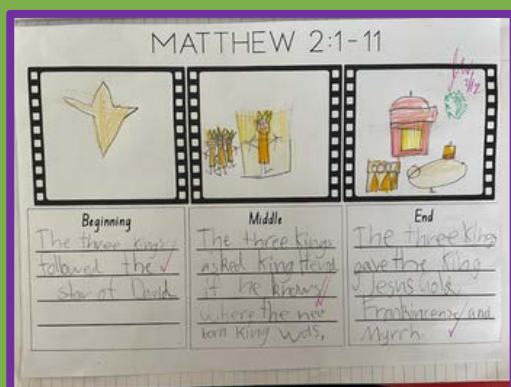 MATTHEW 2:1-11
Beginning
The three kings
followed the
star of David
Middle
The three kings
asked King Herod
if he knows
where the new
born King was,
End
The three Kings
gave the King
Jesus Gold,
Frankincense and
Myrrh